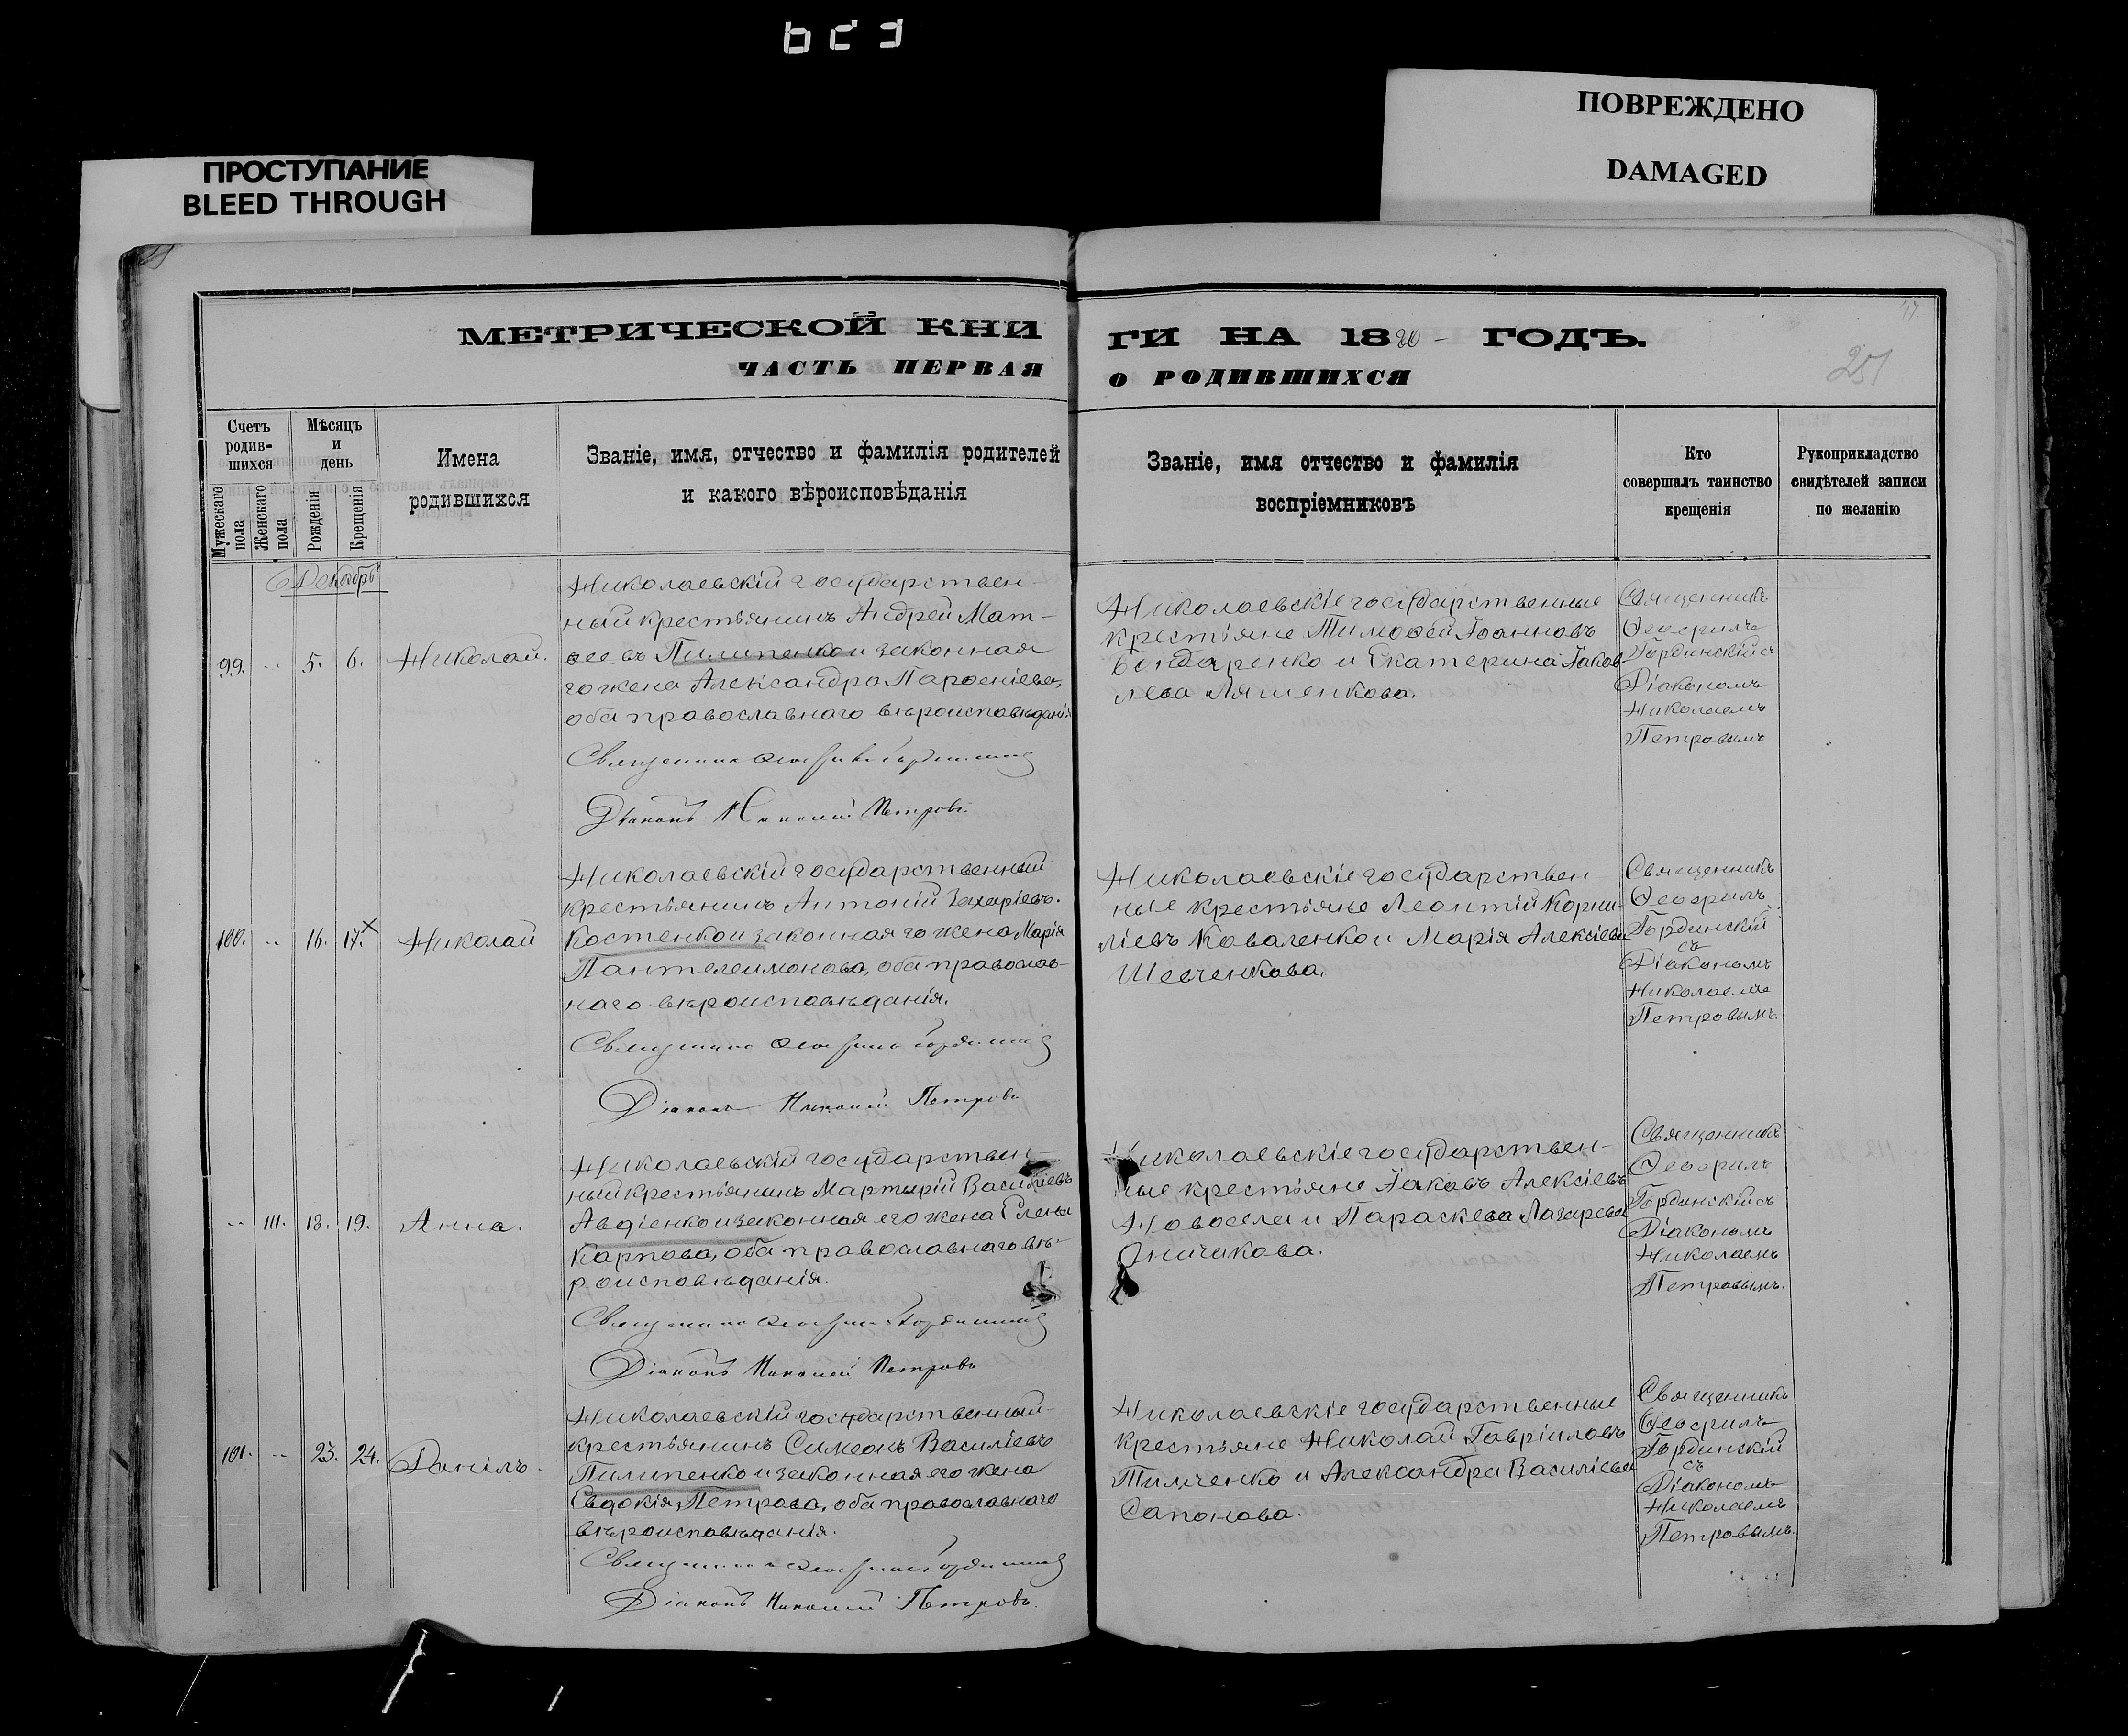 ПРОСТУПАНИЕ
BLEED THROUGH
ПОВРЕЖДЕНО
DAMAGED
МЕТРИЧЕСКОЙ КНИ
ГИ НА 1880 ГОДЪ.
ЧАСТЬ ПЕРВАЯ
О РОДИВШИХСЯ
251
Счетъ родив-шихся
Мужескаго пола
Женскаго пола
Мѣсяцъ и день
Рожденія
Крещенія
Имена родившихся
Званіе, имя, отчество и фамилія родителей
и какого вѣроисповѣданія
Званіе, имя отчество и фамилія
воспріемниковъ
Кто
совершалъ таинство
крещенія
Рукоприкладство
свидѣтелей записи
по желанію
Декабрь
99. 5. 6. Николай.
Николаевскій государствен-
ный крестьянинъ Андрей Мат-
ѳеевъ Пилипенко и законная
го жена Александра Парѳеніева,
оба православнаго вѣроисповѣданія
Священникъ Ѳеофилъ Гординскій
Діаконъ Николай Петровъ
Николаевскіе государственные
крестьяне Тимоѳей Іоанновъ
Бондаренко и Екатерина Іаков-
лева Ляшенкова.
Священникъ
Ѳеофилъ
Гординскій съ
Діакономъ
Николаемъ
Петровымъ
100. 16. 17. Николай
Николаевскій государственный
крестьянинъ Антоній Захаріевъ.
Костенко и законная го жена Марія
Пантелеимонова, оба православ-
наго вѣроисповѣданія.
Священникъ Ѳеофилъ Гординскій
Діаконъ Николай Петровъ
Николаевскіе государствен
ные крестьяне Леонтій Корни-
ліевъ Коваленко и Марія Алексіева
Шевченкова.
Священникъ
Ѳеофилъ
Гординскій
съ
Діакономъ
Николаемъ
Петровымъ.
111. 18. 19. Анна.
Николаевскій государствен-
ный крестьянинъ Мартирій Василіевъ
Авдіенко и законная его жена Елена
Карпова, оба православнаго вѣ-
роисповѣданія.
Священникъ Ѳеофилъ Гординскій
Діаконъ Николай Петровъ
Николаевскіе государствен-
ные крестьяне Іаковъ Алексіевъ
Новосела и Параскева Лазарева
Священникъ
Ѳеофилъ
Гординскій съ
Діакономъ
Николаемъ
Петровымъ.
101. 23. 24. Даніилъ.
Николаевскій государственный
крестьянинъ Симеонъ Василіевъ
Пилипенко и законная его жена
Евдокія Петрова, оба православнаго
вѣроисповѣданія.
Священникъ Ѳеофилъ Гординскій
Діаконъ Николай Петровъ.
Николаевскіе государственные
крестьяне Николай Гавріиловъ
Тимченко и Александра Василіева
Сапонова.
Священникъ
Ѳеофилъ
Гординскій
съ
Діакономъ
Николаемъ
Петровымъ.